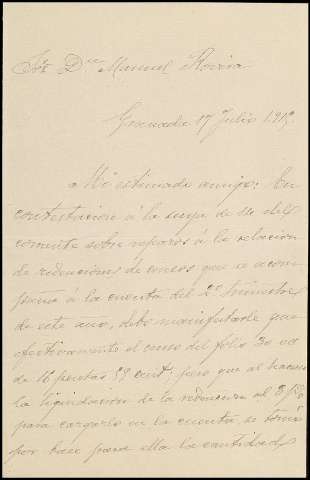 Sr. Dn. Manuel Rovira
Granada 17 Julio 191
Mi estimado amigo: En
contestacion á la suya de 14 del
corriente sobre reparos á la relacion
de redenciones de censos que se acom
paña á la cuenta del 2º trimestre
de este año, debo manifestarle que
efectivamente el censo del folio 30 es
de 16 pesetas 59 cent. pero que al hacerse
la liquidacion de la redencion al 3 p%
para cargarlo en la cuenta, se tomó
por base para ella la cantidad